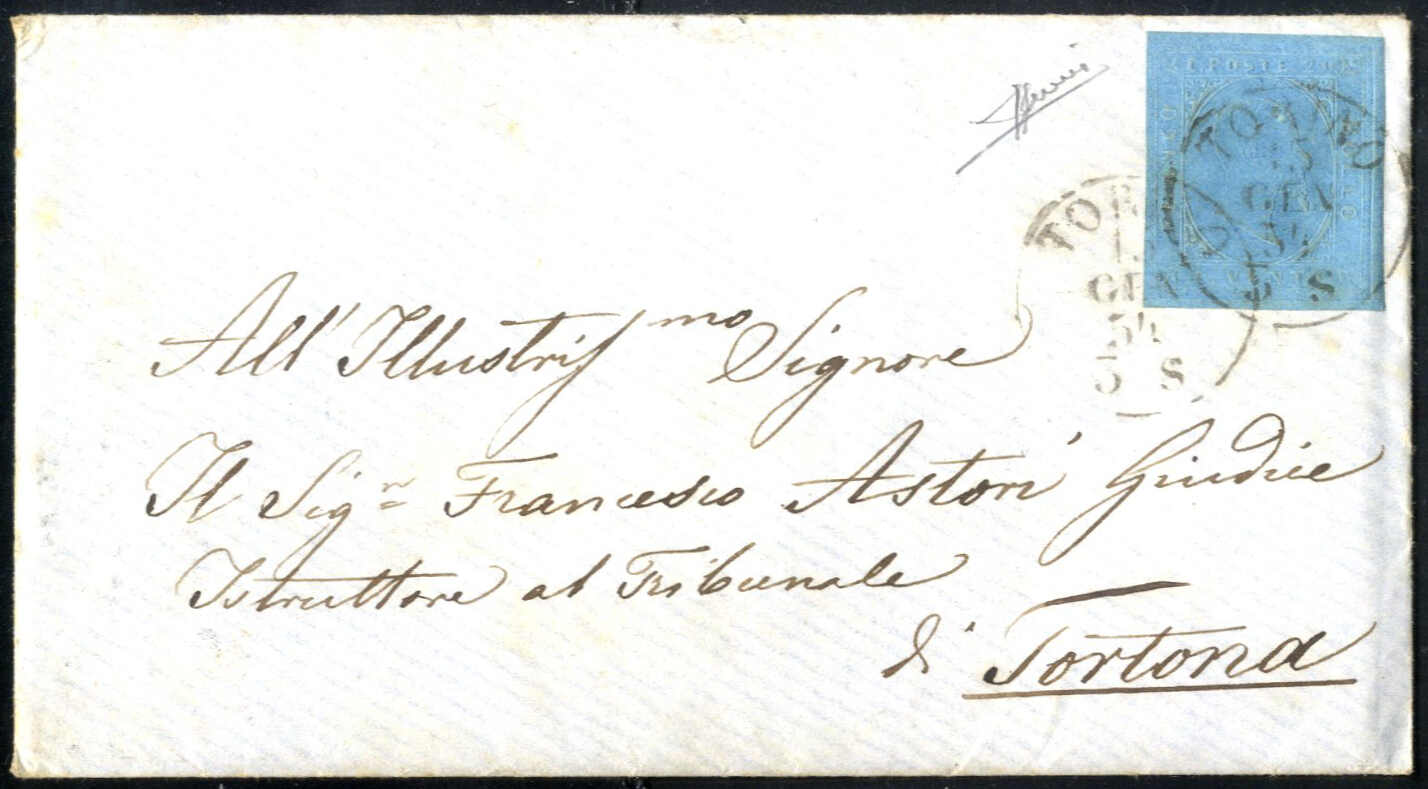 C. POSTE 20
TORINO
15
GEN
54
5 S
TOR
GEN
54
5 S
All' Illustris.mo Signore
Il Sig.r Francesco Astori Giudice
Istruttore al Tribunale
di Tortona